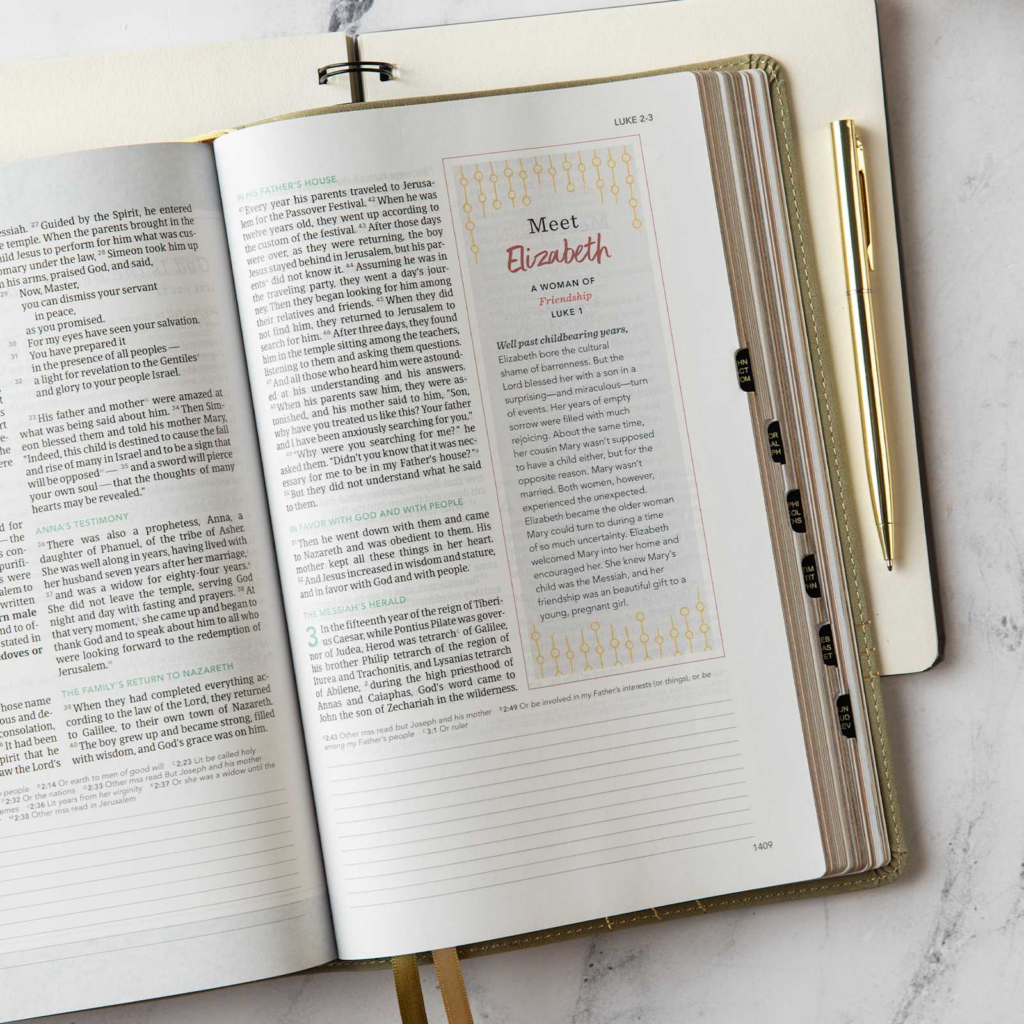 essiah. 27 Guided by the Spirit, he entered
e temple. When the parents brought in the
hild Jesus to perform for him what was cus-
omary under the law, 28 Simeon took him up
n his arms, praised God, and said,
29 Now, Master,
you can dismiss your servant
in peace,
as you promised.
30 For my eyes have seen your salvation.
31 You have prepared it
in the presence of all peoples —
32 a light for revelation to the Gentiles
and glory to your people Israel.
33 His father and mother were amazed at
what was being said about him. 34 Then Sim-
eon blessed them and told his mother Mary,
"Indeed, this child is destined to cause the fall
and rise of many in Israel and to be a sign that
will be opposed — 35 and a sword will pierce
your own soul — that the thoughts of many
hearts may be revealed."
ANNA'S TESTIMONY
36 There was also a prophetess, Anna, a
daughter of Phanuel, of the tribe of Asher.
She was well along in years, having lived with
her husband seven years after her marriage,
37 and was a widow for eighty-four years.
She did not leave the temple, serving God
night and day with fasting and prayers. 38 At
that very moment, she came up and began to
thank God and to speak about him to all who
were looking forward to the redemption of
Jerusalem.
THE FAMILY'S RETURN TO NAZARETH
39 When they had completed everything ac-
cording to the law of the Lord, they returned
to Galilee, to their own town of Nazareth.
40 The boy grew up and became strong, filled
with wisdom, and God's grace was on him.
people 2:14 Or earth to men of good will 2:23 Lit be called holy
2:32 Or the nations 2:33 Other mss read But Joseph and his mother
2:36 Lit years from her virginity 2:37 Or she was a widow until the
2:38 Other mss read in Jerusalem
LUKE 2-3
IN HIS FATHER'S HOUSE
41 Every year his parents traveled to Jerusa-
lem for the Passover Festival. 42 When he was
twelve years old, they went up according to
the custom of the festival. 43 After those days
were over, as they were returning, the boy
Jesus stayed behind in Jerusalem, but his par-
ents did not know it. 44 Assuming he was in
the traveling party, they went a day's jour-
ney. Then they began looking for him among
their relatives and friends. 45 When they did
not find him, they returned to Jerusalem to
search for him. 46 After three days, they found
him in the temple sitting among the teachers,
listening to them and asking them questions.
47 And all those who heard him were astound-
ed at his understanding and his answers.
48 When his parents saw him, they were as-
tonished, and his mother said to him, "Son,
why have you treated us like this? Your father
and I have been anxiously searching for you."
49 "Why were you searching for me?" he
asked them. "Didn't you know that it was nec-
essary for me to be in my Father's house?"
50 But they did not understand what he said
to them.
IN FAVOR WITH GOD AND WITH PEOPLE
51 Then he went down with them and came
to Nazareth and was obedient to them. His
mother kept all these things in her heart.
52 And Jesus increased in wisdom and stature,
and in favor with God and with people.
THE MESSIAH'S HERALD
3 In the fifteenth year of the reign of Tiberi-
us Caesar, while Pontius Pilate was gover-
nor of Judea, Herod was tetrarch of Galilee,
his brother Philip tetrarch of the region of
Iturea and Trachonitis, and Lysanias tetrarch
of Abilene, 2 during the high priesthood of
Annas and Caiaphas, God's word came to
John the son of Zechariah in the wilderness.
2:43 Other mss read but Joseph and his mother 2:49 Or be involved in my Father's interests (or things), or be
among my Father's people 3:1 Or ruler
Meet
Elizabeth
A WOMAN OF
Friendship
LUKE 1
Well past childbearing years,
Elizabeth bore the cultural
shame of barrenness. But the
Lord blessed her with a son in a
surprising—and miraculous—turn
of events. Her years of empty
sorrow were filled with much
rejoicing. About the same time,
her cousin Mary wasn't supposed
to have a child either, but for the
opposite reason. Mary wasn't
married. Both women, however,
experienced the unexpected.
Elizabeth became the older woman
Mary could turn to during a time
of so much uncertainty. Elizabeth
welcomed Mary into her home and
encouraged her. She knew Mary's
child was the Messiah, and her
friendship was an beautiful gift to a
young, pregnant girl.
1409